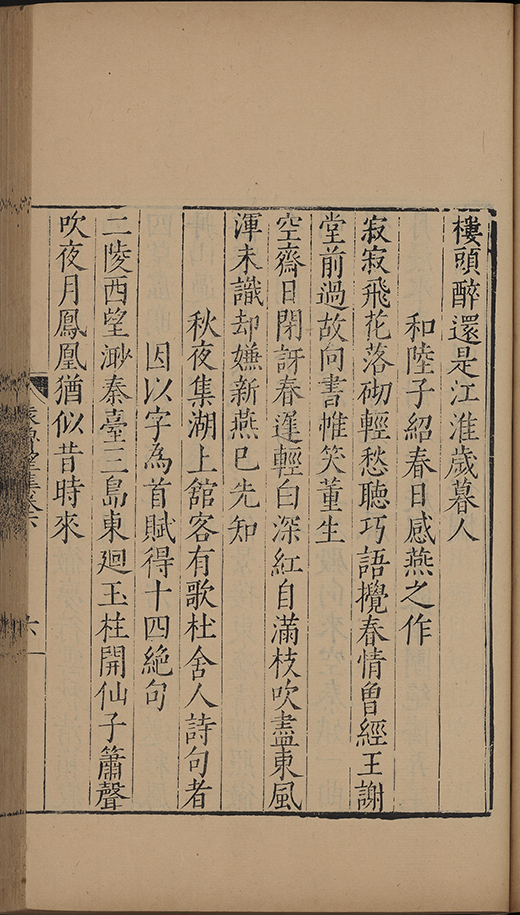 樓頭醉還是江淮歲暮人
和陸子紹春日感燕之作
寂寂飛花落砌輕愁聽巧語攪春情曾經王謝
堂前過故向書帷笑董生
空齋日閉訝春遲輕白深紅自滿枝吹盡東風
渾未識却嫌新燕已先知
秋夜集湖上舘客有歌杜舍人詩句者
因以字為首賦得十四絕句
二陵西望渺秦臺三島東廻玉柱開仙子簫聲
吹夜月鳳凰猶似昔時來
六